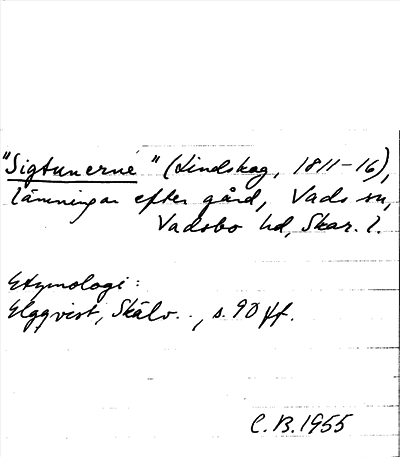 "Sigtunerne" (Lindskog, 1811-16),
lämningar efter gård, Vads sn,
Vadsbo hd, Skar. l.
Etymologi:
Elgqvist, Skälv.., s. 90 ff.
C.B. 1955